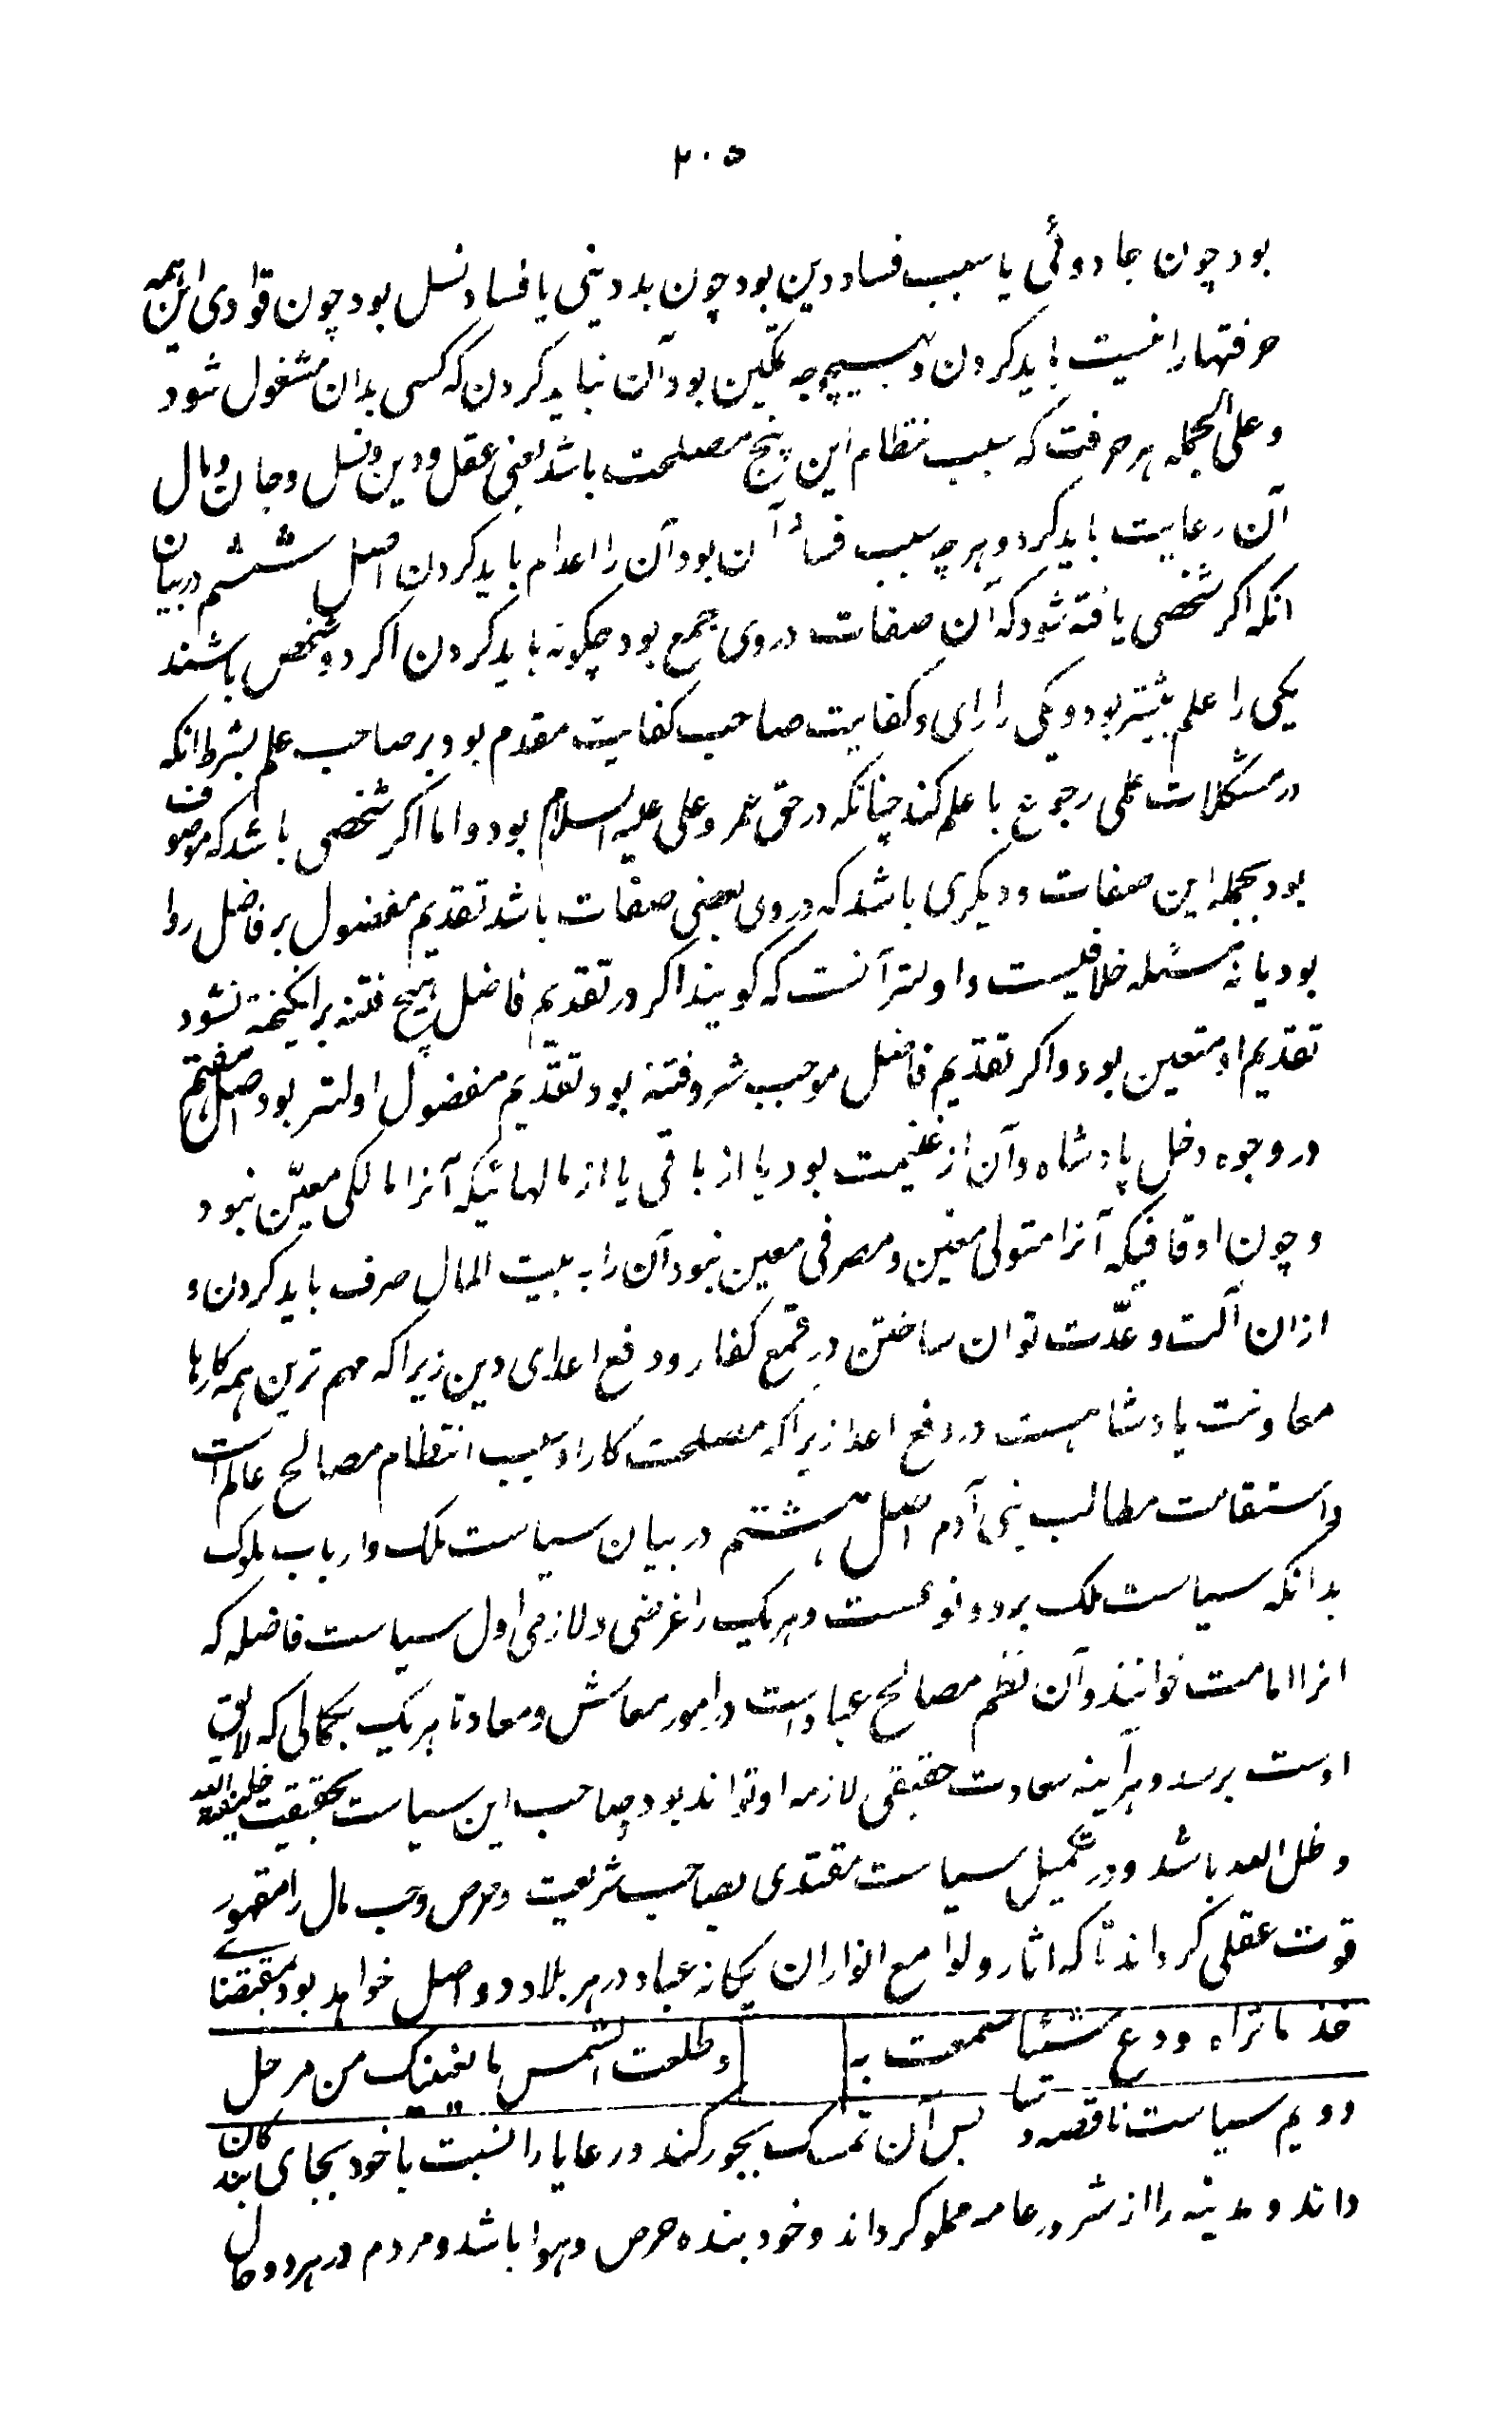 ۲۰۵
بود چون جادوئی یا سبب فساد دین بود چون بد دینی یا فساد نسل بود چون قوادی این همه
حرفتها را نیست باید کردن و بهیچوجه تمکین بود آن نباید کردن که کسی بدان مشغول شود
و علی الجمله هر حرفت که سبب نتظام این پنج مصلحت باشد یعنی عقل و دین و نسل و جان و مال
آن رعایت باید کرد و هر چه سبب فساد آن بود آن را اعدام باید کردن اصل ششم در بیان
انکه اکر شخصی یافته شود که آن صفات در وی جمع بود چکونه باید کردن اکر دو شخص باشند
یکی را علم بیشتر بود و یکی را رای و کفایت صاحب کفایت مقدم بود بر صاحب علم بشرط انکه
در مشکلات علمی رجوع با علم کند چنانکه در حق عمر و علی علیه السلام بود و اما اکر شخصی باشد که موصوف
بود بجمله این صفات و دیکری باشد که در وی بعضی صفات باشد تقدیم مفضول بر فاضل روا
بود یا نه مسئله خلافیست و اولتر آنست که کویند اکر در تقدیم فاضل هیچ فتنه برانکیخته نشود
تقدیم او متعین بود و اکر تقدیم فاضل موجب شر و فتنه بود تقدیم مفضول اولتر بود اصل هفتم
در وجوه دخل پادشاه و آن از غنیمت بود یا از باقی یا از مالهائیکه آنرا مالکی معیّن نبود
و چون اوقافیکه آنرا متولی معین و مصرفی معین نبود آن را به بیت المال صرف باید کردن و
ازان آلت و عدّت توان ساختن در قمع کفار و دفع اعدای دین زیرا که مهم ترین همه کارها
معاونت پادشاهست در دفع اعدا زیرا که مصلحت کار او سبب انتظام مصالح عالم است
و استقامت مطالب بنی آدم اصل هشتم در بیان سیاست ملک و ارباب ملوک
بدانکه سیاست ملک بر دو نوعست و هر یک را غرضی و لازمی اول سیاست فاضله که
انرا امامت خوانند و آن نظم مصالح عباد است در امور معاش و معاد تا هر یک بکمالی که لایق
اوست برسد و هر آینه سعادت حقیقی لازمه او تواند بود و صاحب این سیاست بحقیقت خلیفة الله
و ظل الله باشد و در تکمیل سیاست مقتدی بصاحب شریعت و حرص و حب مال را مقهور
قوت عقلی کرداند تا که اثار و لوامع انوار ان یکانه عباد در هر بلاد و واصل خواهد بود بمقتضای
خذ ما تراه و دع شیئا سمعت به و طلعت الشمس ما یغنیک من زحل
دویم سیاست ناقصه و سایس آن تمسک بجور کند و رعایا را نسبت با خود بجای بندکان
داند و مدینه را از شرور عامه مملو کرداند و خود بنده حرص و هوا باشد و مردم در هر دو حال